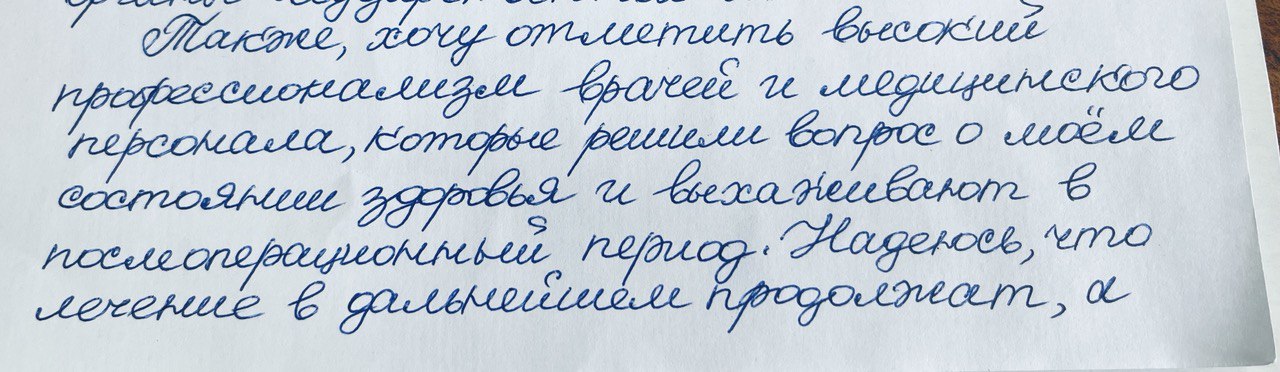 Также, хочу отметить высокий
профессионализм врачей и медицинского
персонала, которые решили вопрос о моём
состоянии здоровья и выхаживают в
послеоперационный период. Надеюсь, что
лечение в дальнейшем продолжат, а